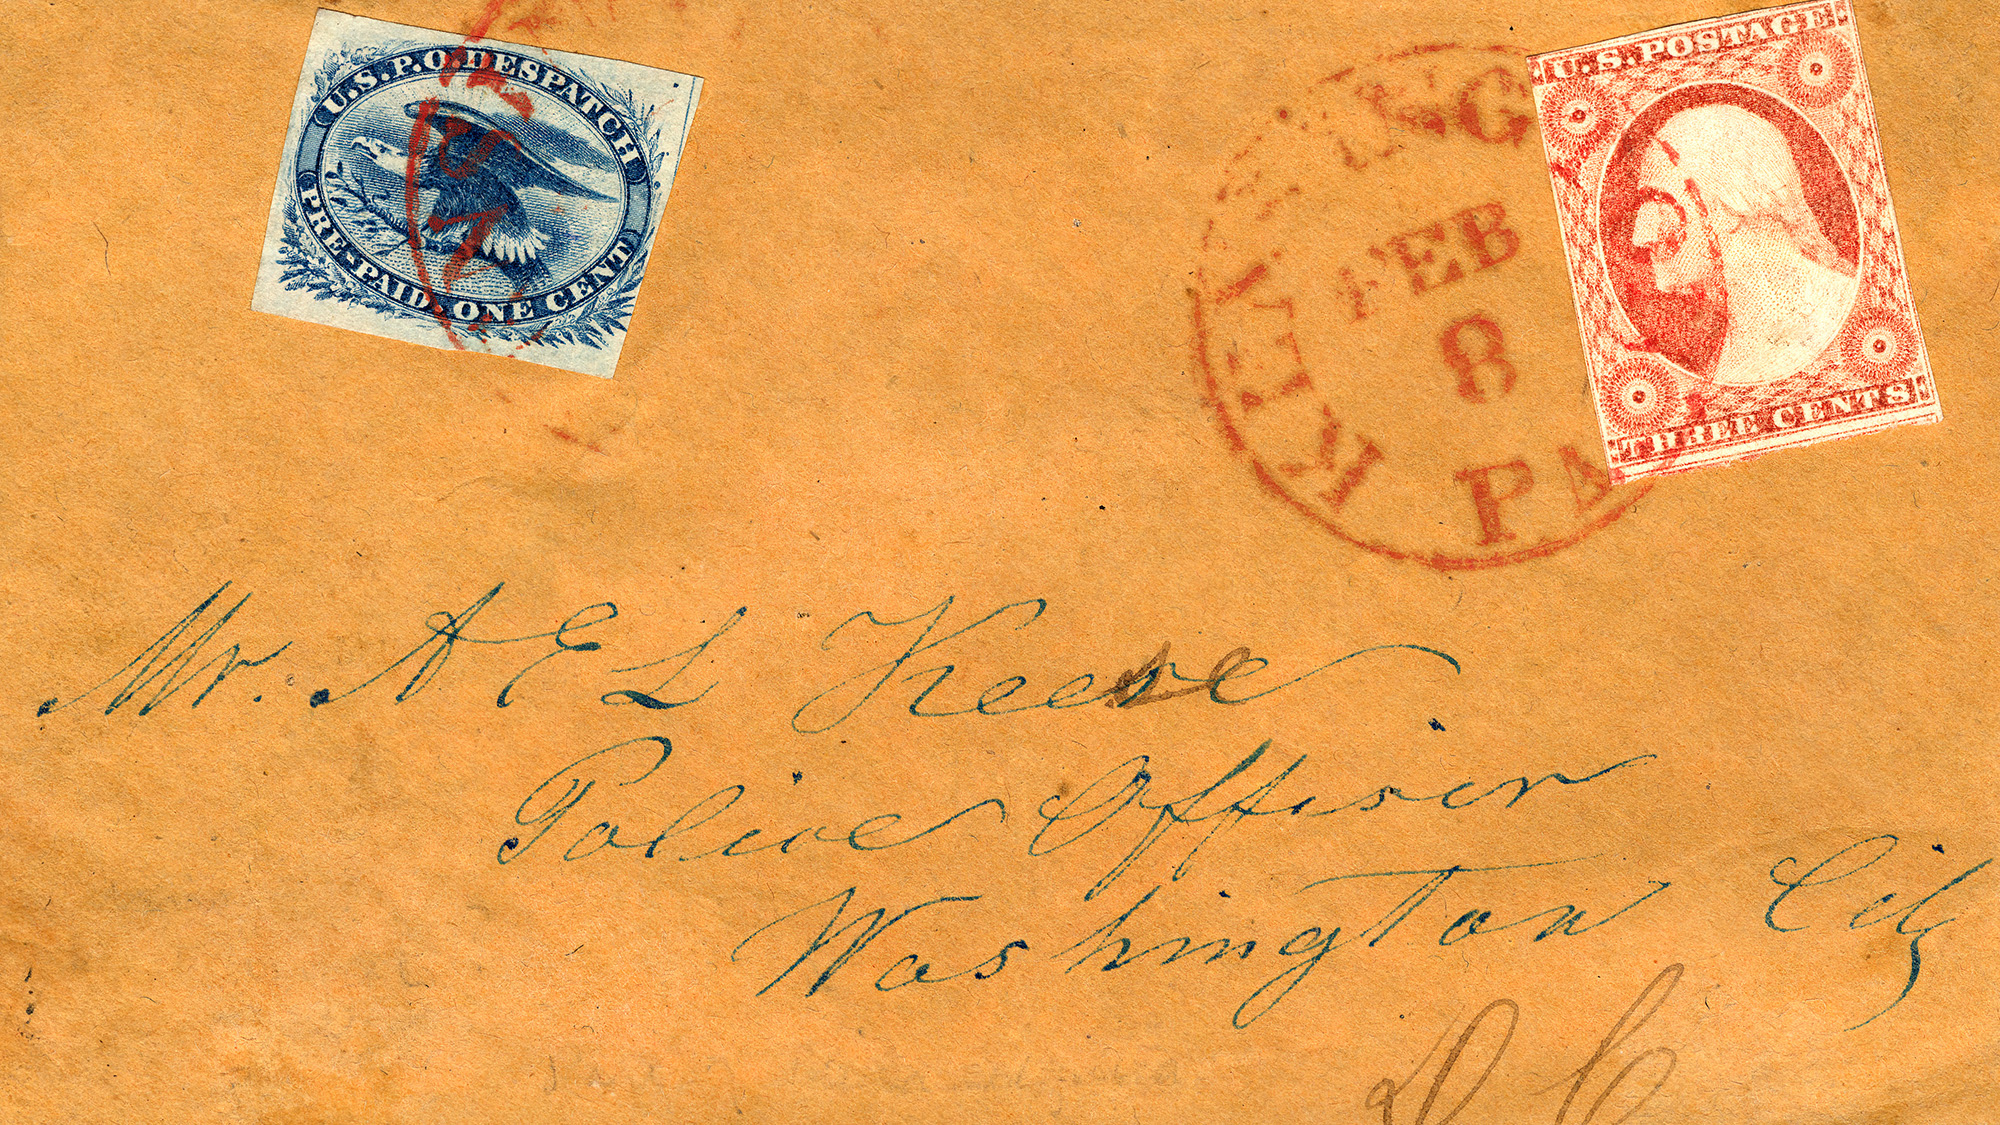 U.S.P.O. DESPATCH
PRE-PAID. ONE CENT
U.S. POSTAGE
THREE CENTS
FEB
8
PA
Mr. A E L Keese
Police Officer
Washington City
D C